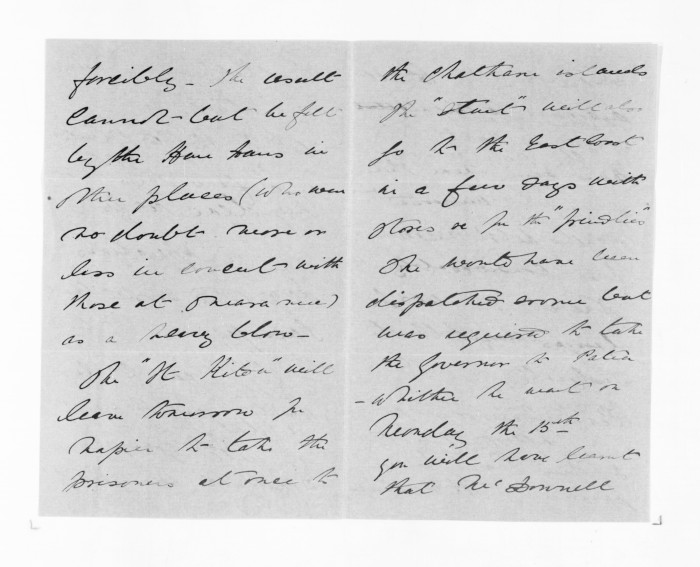 forcibly - The result
cannot but be felt
by the Hau haus in
other places (who were
no doubt more or
less in concert with
those at Omaranui)
as a heavy blow -
The "St Kilda" will
leave tomorrow for
Napier to take the
prisoners at once to
the Chatham islands
The "Sturt" will also
go to the East Coast
in a few days with
stores &c for the "friendlies"
She would have been
dispatched sooner but
was required to take
the Governor to Patea
- Whither he went on
Monday the 15th
you will have learnt
that McDonnell